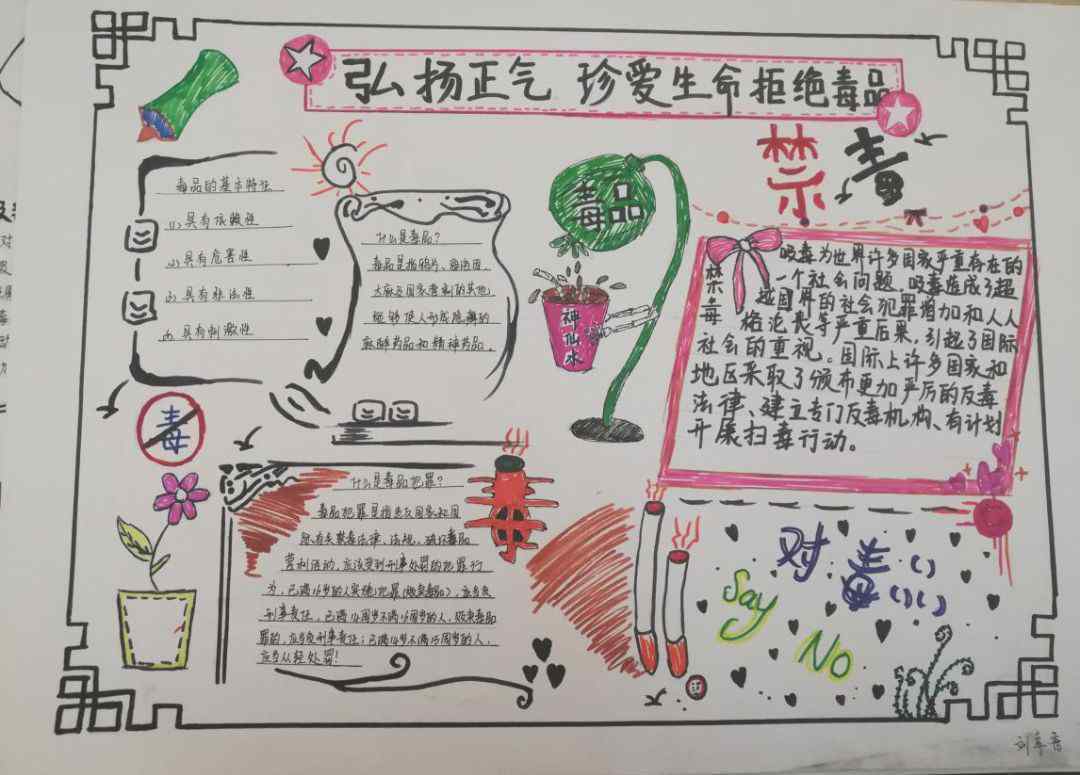 弘扬正气 珍爱生命 拒绝毒品
禁毒
毒品的基本特征
(1)具有依赖性
(2)具有危害性
(3)具有非法性
(4)具有刺激性
什么是毒品？
毒品是指鸦片、海洛因、
大麻及国家管制的其他
能够使人形成瘾癖的
麻醉药品和精神药品。
毒品
神仙水
禁毒
吸毒为世界许多国家严重存在的
一个社会问题。吸毒造成了超
越国界的社会犯罪增加和人人
格沦丧等严重后果，引起了国际
社会的重视。国际上许多国家和
地区采取了颁布更加严厉的反毒
法律、建立专门反毒机构、有计划
开展扫毒行动。
毒
什么是毒品犯罪？
毒品犯罪是指违反国家和国
际有关禁毒法律、法规，破坏毒品
管制活动，应该受到刑事处罚的犯罪行
为，已满16岁的人实施犯罪(贩卖毒品)，应当负
刑事责任，已满14周岁不满16周岁的人，贩卖毒品
罪的，应当负刑事责任；已满14岁不满18周岁的人，
应当从轻处罚！
对毒
Say
No